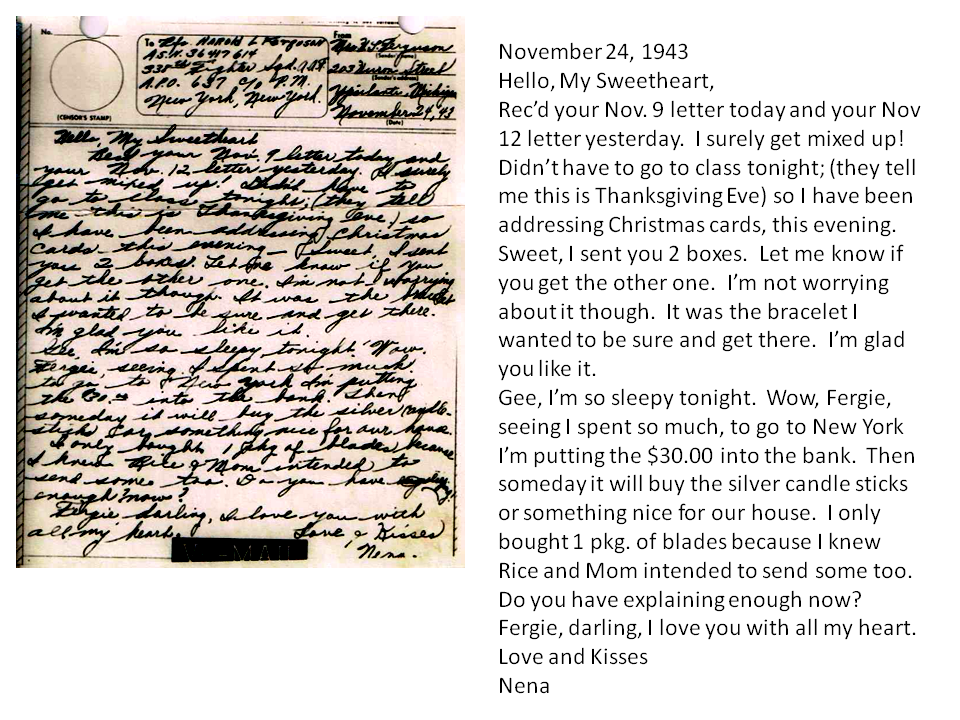 No.
(CENSOR'S STAMP)
To Pfc. Harold L Ferguson
A.S.N. 36417614
338th Fighter Sqd.
A.P.O. 637 c/o P.M.
New York, New York.
From
Mrs H. L. Ferguson
(Sender's name)
203 Huron Street
(Sender's address)
Ypsilanti Michigan
November 24, '43
(Date)
Hello, My Sweetheart
Rec'd your Nov. 9 letter today and
your Nov. 12 letter yesterday. I surely
get mixed up! Didn't have to
go to class tonight; (they tell
me this is Thanksgiving Eve) so
I have been addressing Christmas
cards this evening. Sweet, I sent
you 2 boxes. Let me know if you
get the other one. I'm not worrying
about it though. It was the bracelet
I wanted to be sure and get there.
I'm glad you like it.
Gee, I'm so sleepy tonight. Wow,
Fergie, seeing I spent so much
to go to New York I'm putting
the into the bank. Then
someday it will buy the silver candle-
sticks or something nice for our house.
I only bought 1 pkg of blades because
I knew & Mom intended to
send some too. Do you have
enough now?
Fergie, darling, I love you with
all my heart.
Love & Kisses
Nena.
V-MAIL
November 24, 1943
Hello, My Sweetheart,
Rec'd your Nov. 9 letter today and your Nov
12 letter yesterday. I surely get mixed up!
Didn't have to go to class tonight; (they tell
me this is Thanksgiving Eve) so I have been
addressing Christmas cards, this evening.
Sweet, I sent you 2 boxes. Let me know if
you get the other one. I'm not worrying
about it though. It was the bracelet I
wanted to be sure and get there. I'm glad
you like it.
Gee, I'm so sleepy tonight. Wow, Fergie,
seeing I spent so much, to go to New York
I'm putting the $30.00 into the bank. Then
someday it will buy the silver candle sticks
or something nice for our house. I only
bought 1 pkg. of blades because I knew
Rice and Mom intended to send some too.
Do you have explaining enough now?
Fergie, darling, I love you with all my heart.
Love and Kisses
Nena